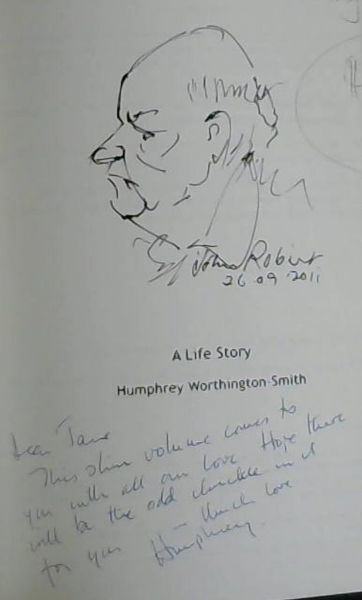 John Robert
26.09.2011
A Life Story
Humphrey Worthington-Smith
Dear Jane
This slim volume comes to
you with all our love Hope there
will be the odd chuckle in it
for you — Much love
Humphrey.